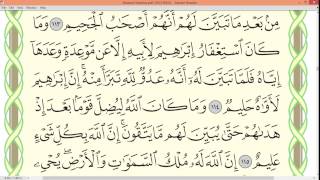 مِنۢ بَعْدِ مَا تَبَيَّنَ لَهُمْ أَنَّهُمْ أَصْحَٰبُ ٱلْجَحِيمِ ١١٣ وَمَا
كَانَ ٱسْتِغْفَارُ إِبْرَٰهِيمَ لِأَبِيهِ إِلَّا عَن مَّوْعِدَةٍ وَعَدَهَآ
إِيَّاهُ فَلَمَّا تَبَيَّنَ لَهُۥٓ أَنَّهُۥ عَدُوٌّ لِّلَّهِ تَبَرَّأَ مِنْهُ ۚ إِنَّ إِبْرَٰهِيمَ
لَأَوَّٰهٌ حَلِيمٌ ١١٤ وَمَا كَانَ ٱللَّهُ لِيُضِلَّ قَوْمًۢا بَعْدَ إِذْ
هَدَىٰهُمْ حَتَّىٰ يُبَيِّنَ لَهُم مَّا يَتَّقُونَ ۚ إِنَّ ٱللَّهَ بِكُلِّ شَىْءٍ
عَلِيمٌ ١١٥ إِنَّ ٱللَّهَ لَهُۥ مُلْكُ ٱلسَّمَٰوَٰتِ وَٱلْأَرْضِ ۖ يُحْىِۦ